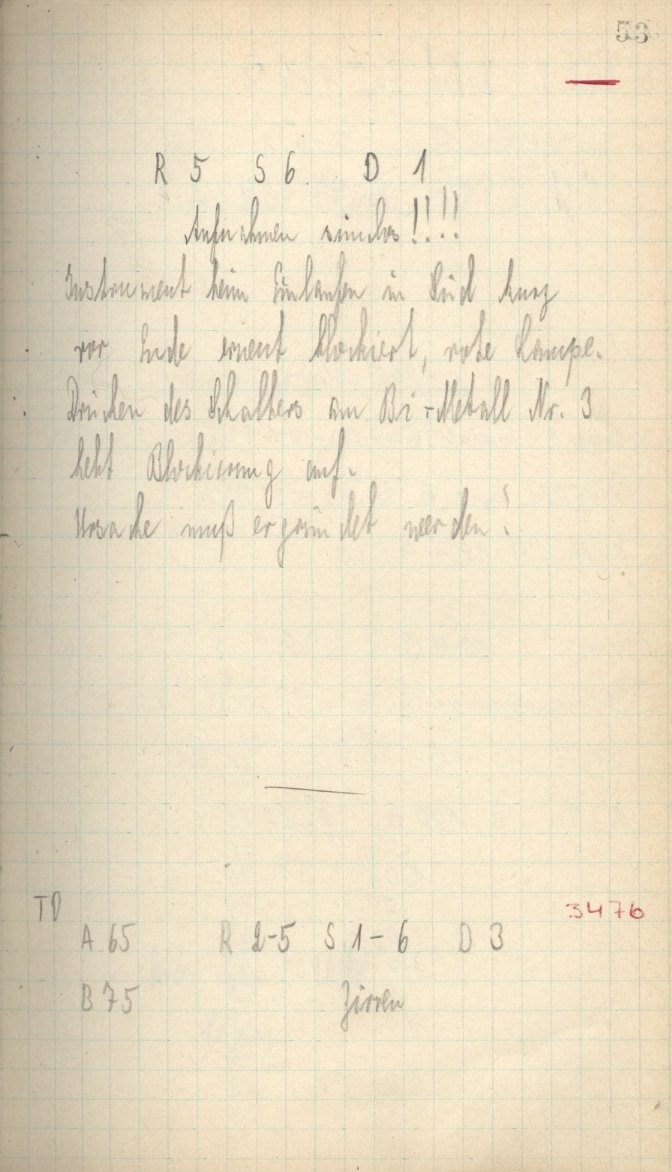 53
R 5 S 6. D 1
Aufnahmen sinnlos!!!!
Instrument beim Einlaufen in Süd kurz
vor Ende erneut blockiert, rote Lampe.
Drücken des Schalters am Bi-Metall Nr. 3
hebt Blockierung auf.
Ursache muß ergründet werden!
TD
3476
A 65 R 2-5 S 1-6 D 3
B 75 Zirren